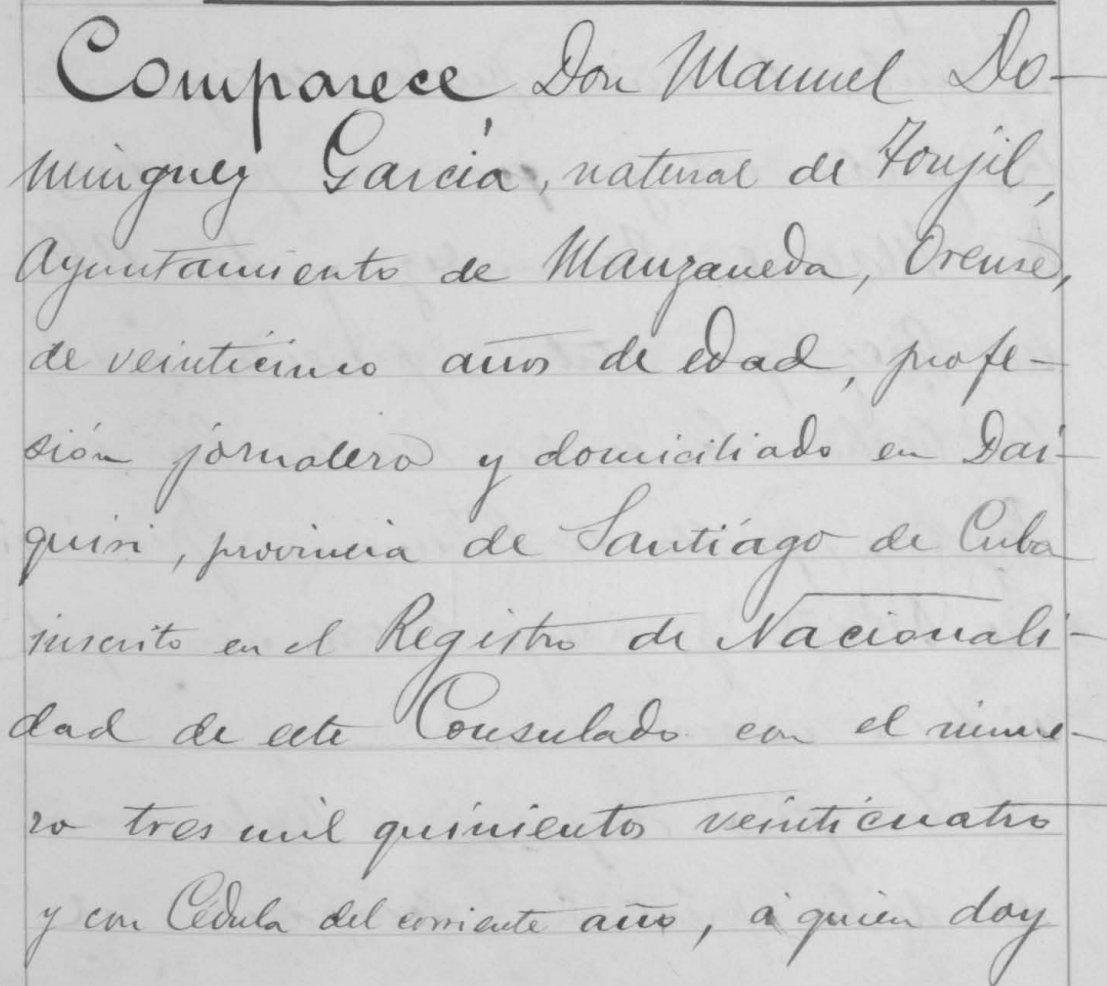 Comparece Don Manuel Do-
minguez García, natural de Foujil,
Ayuntamiento de Manzaneda, Orense,
de veinticinco años de edad, profe-
sión jornalero y domiciliado en Dai-
quiri, provincia de Santiágo de Cuba
inscrito en el Registro de Nacionali-
dad de este Consulado con el núme-
ro tres mil quinientos veinticuatro
y con Cédula del corriente año, á quien doy